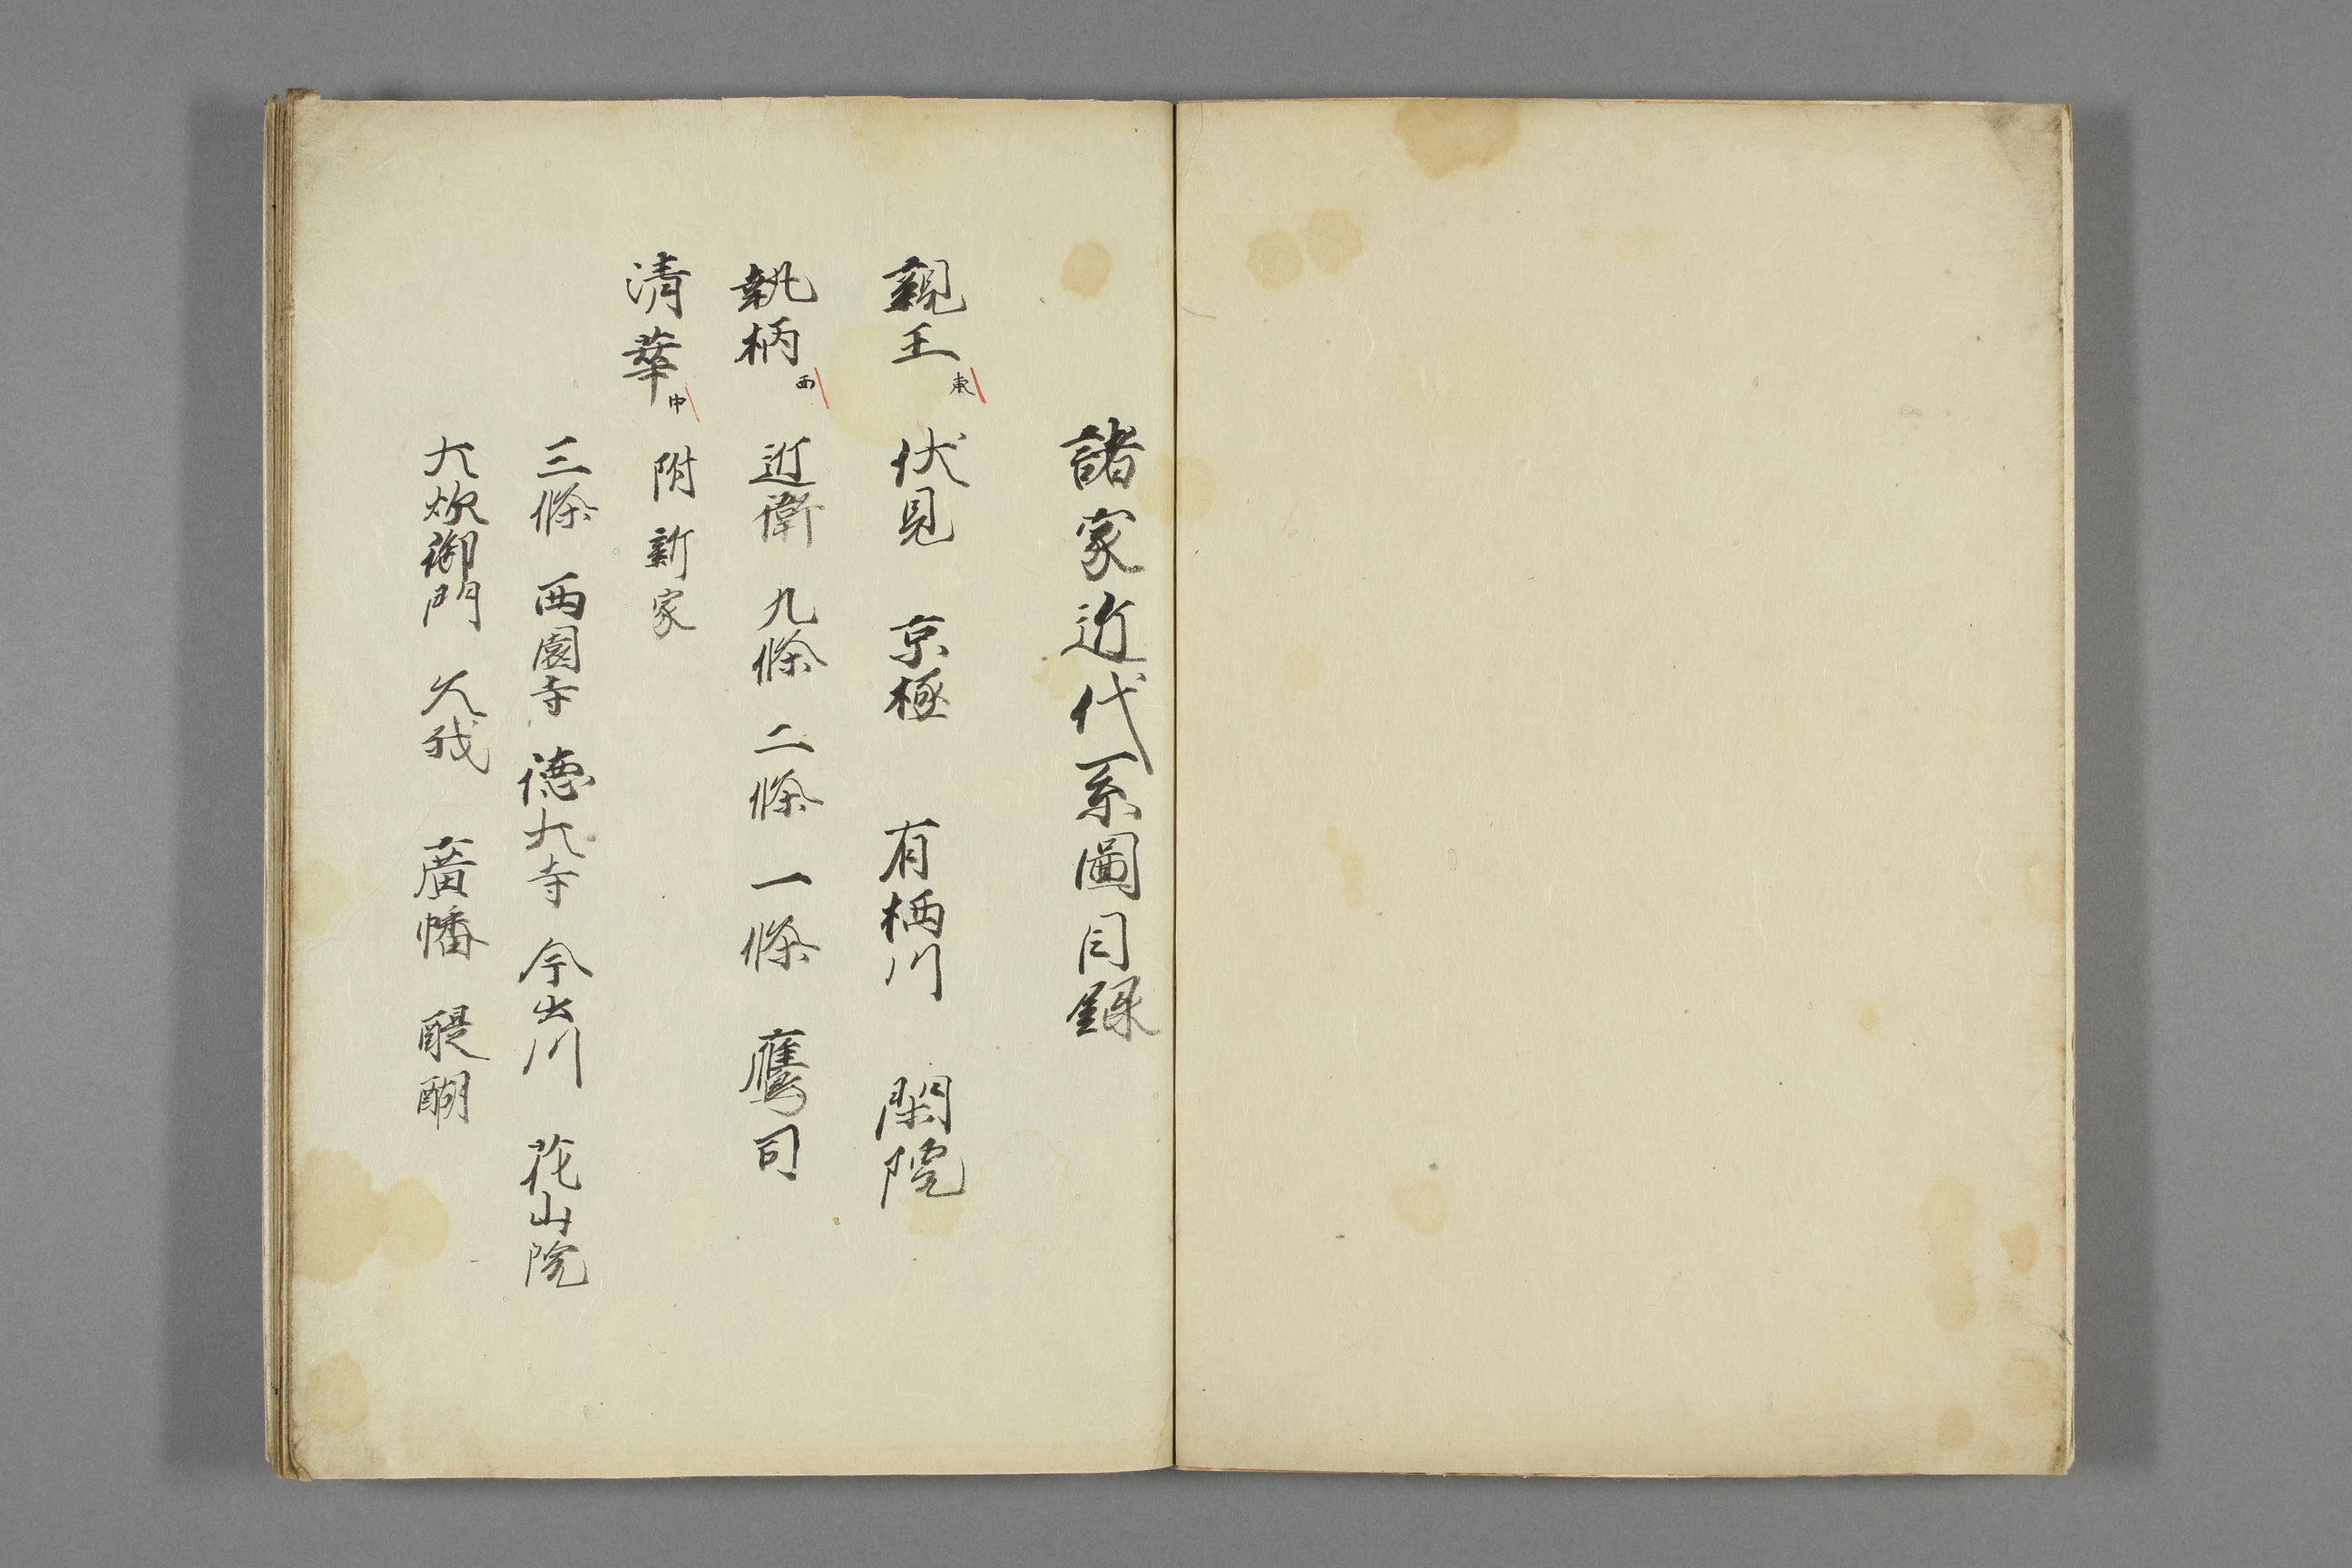 諸家近代系圖目録
親王 東 伏見 京極 有栖川 閑院
執柄 西 近衛 九條 二條 一條 鷹司
清華 中 附新家
三條 西園寺 德大寺 今出川 花山院
大炊御門 久我 廣幡 醍醐